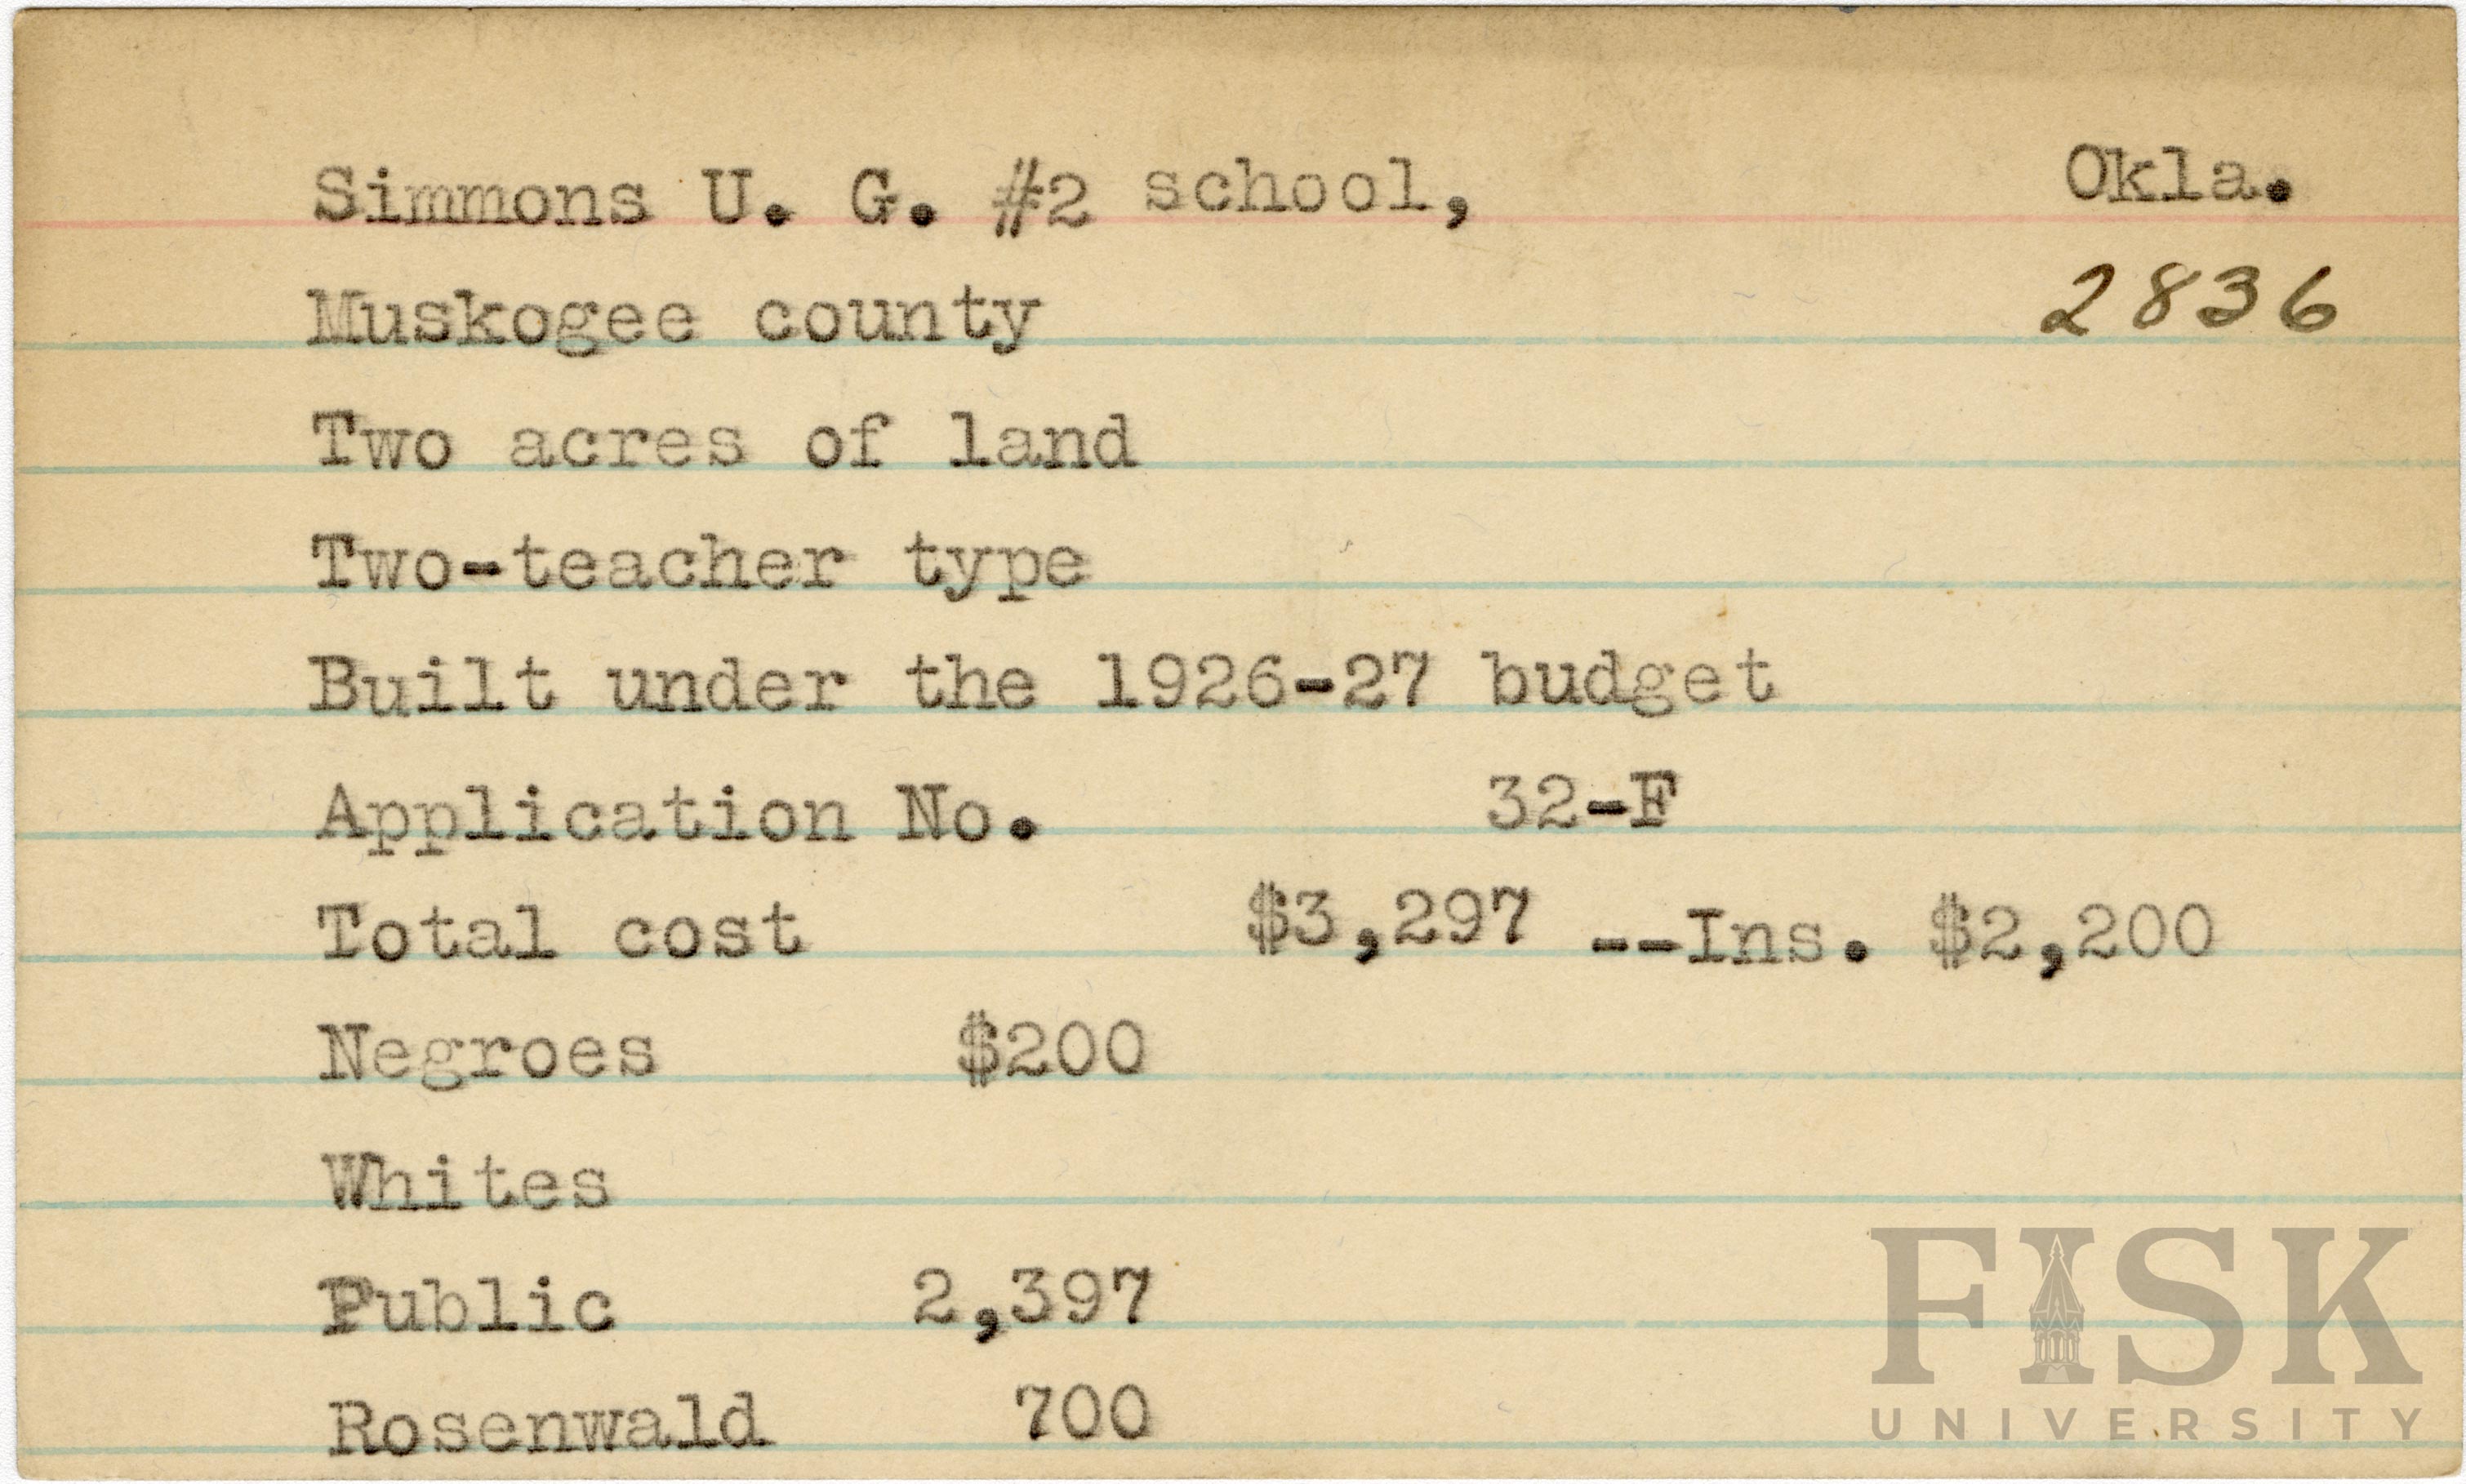 Simmons U. G. #2 school, Okla.
Muskogee county 2836
Two acres of land
Two-teacher type
Built under the 1926-27 budget
Application No. 32-F
Total cost $3,297 --Ins. $2,200
Negroes $200
Whites
Public 2,397
Rosenwald 700
FISK
UNIVERSITY